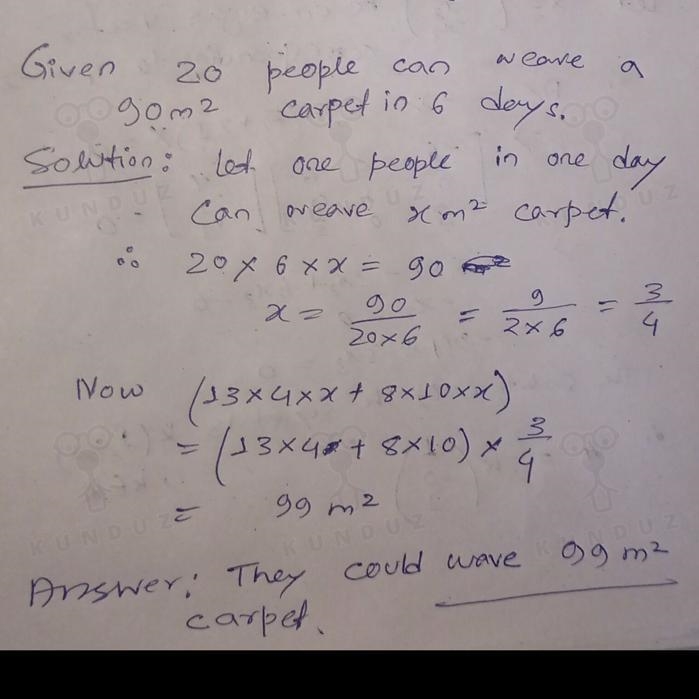 Given 20 people can weave a
90m² carpet in 6 days.
Solution: Let one people in one day
can weave x m² carpet.
∴ 20 × 6 × x = 90
x = 90/20×6 = 9/2×6 = 3/4
Now (13×4×x + 8×10×x)
= (13×4 + 8×10) × 3/4
= 99 m²
Answer: They could wave 99 m²
carpet.
KUNDUZ
KUNDUZ
KUNDUZ
KUNDUZ